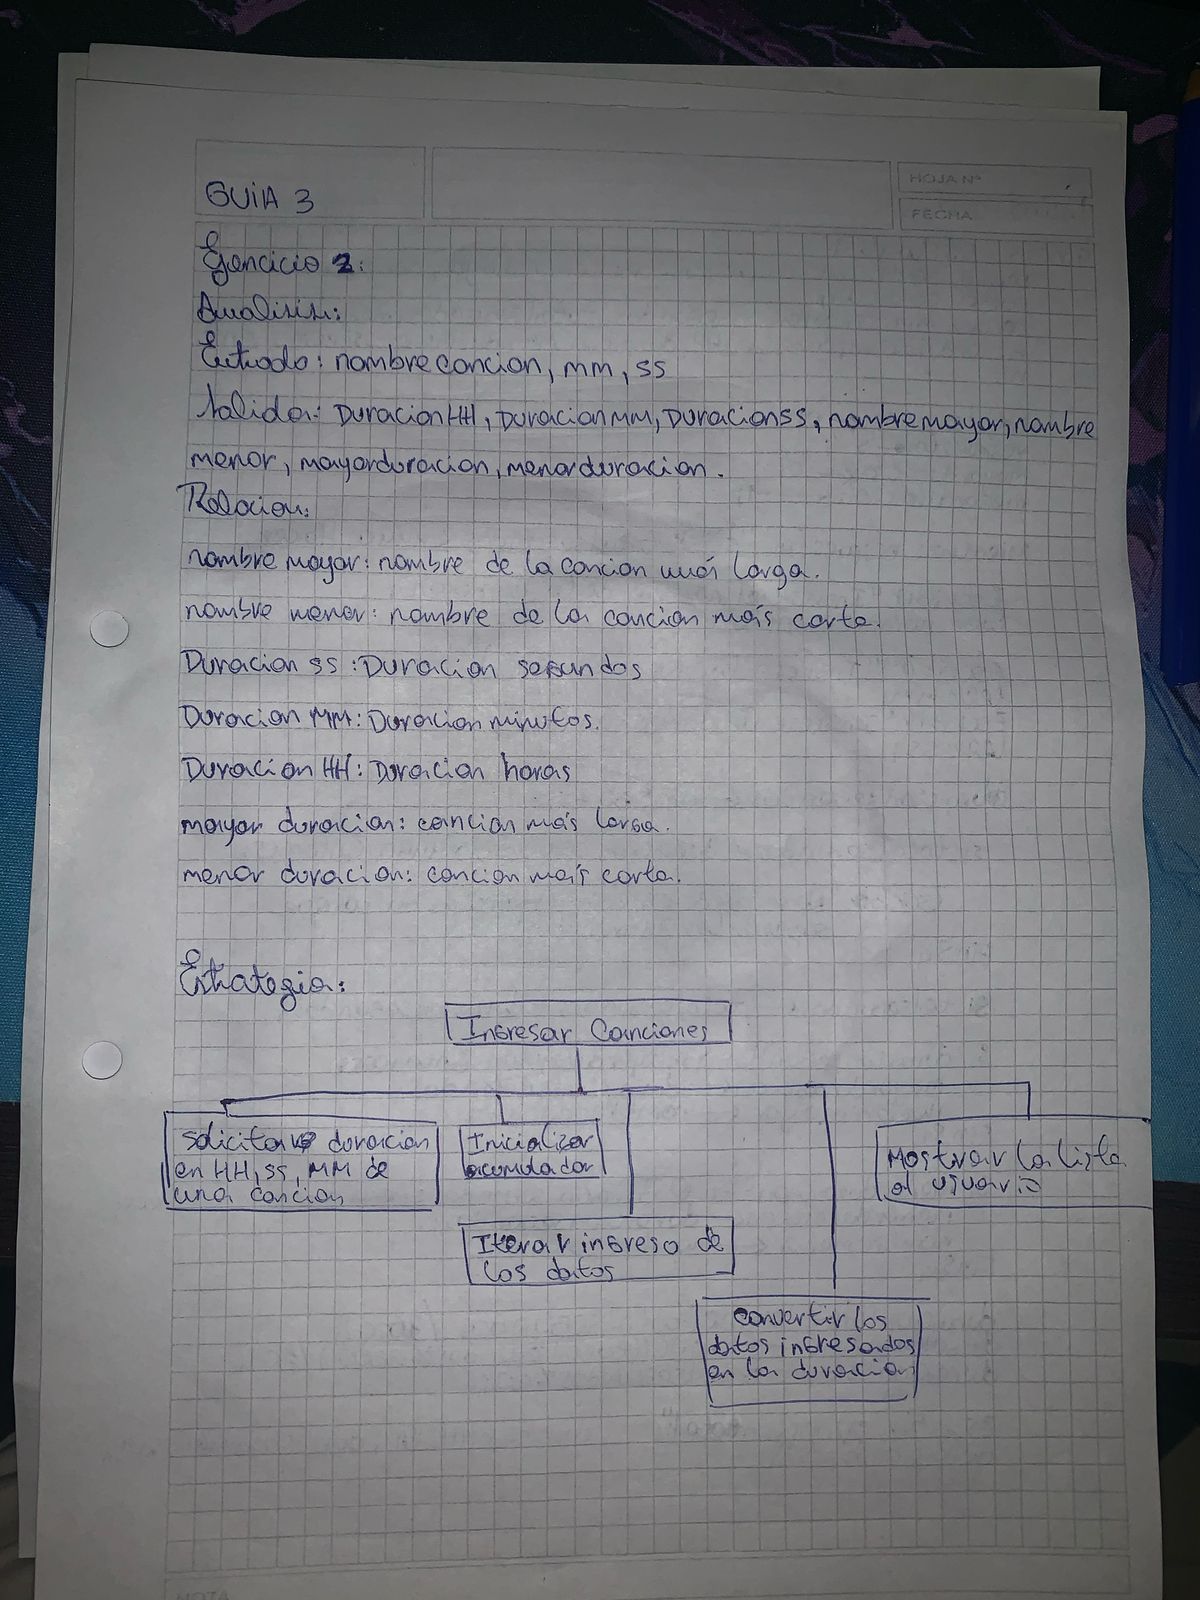 GUIA 3
HOJA Nº
FECHA
Ejercicio 2:
Analisis:
Entrada: nombrecancion, mm, ss
Salida: DuracionHH, DuracionMM, Duracionss, nombremayor, nombre
menor, mayorduracion, menorduracion.
Relacion:
nombre mayor: nombre de la cancion más larga.
nombre menor: nombre de la cancion más corta.
Duracion ss: Duracion segundos
Duracion MM: Duracion minutos.
Duracion HH: Duracion horas
mayor duracion: cancion más larga.
menor duracion: cancion más corta.
Estrategia:
Ingresar Canciones
Solicitar duracion
en HH, SS, MM de
una cancion
Inicializar
acumulador
Iterar ingreso de
los datos
convertir los
datos ingresados
en la duracion
Mostrar la lista
al usuario
NOTA